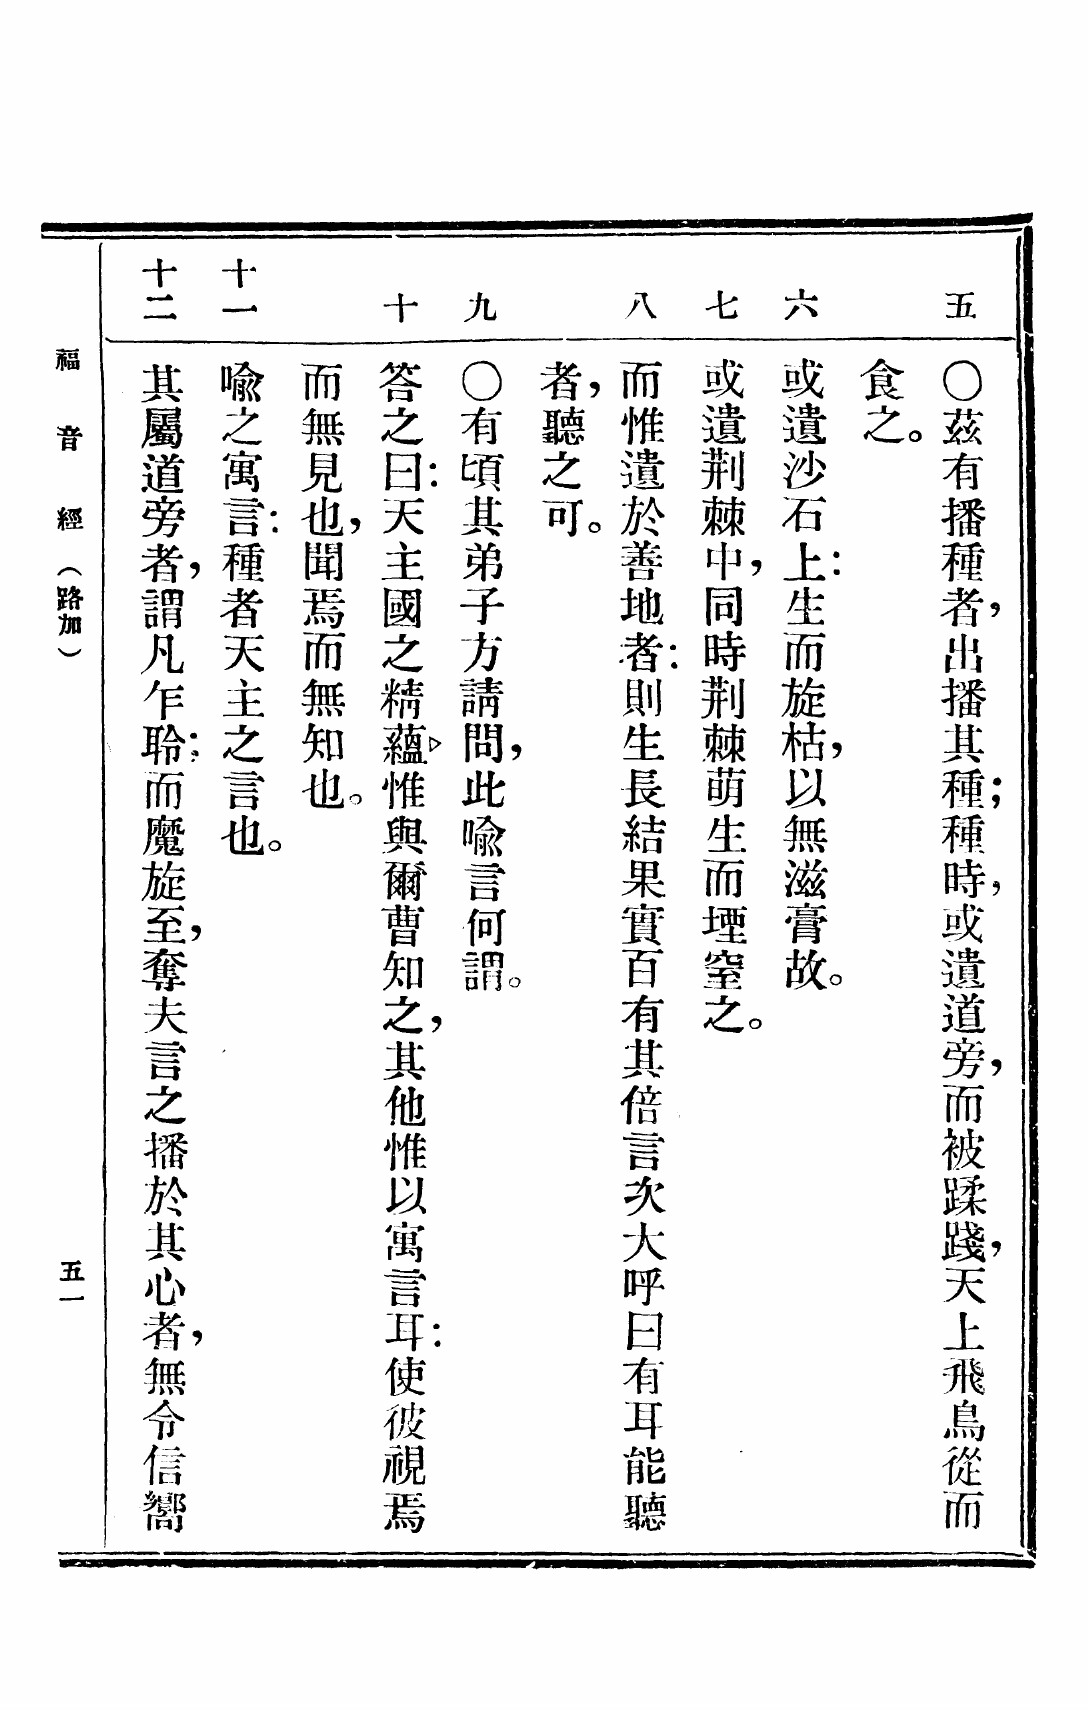 五
〇茲有播種者，出播其種；種時，或遺道旁，而被蹂踐，天上飛鳥從而
食之。
六
或遺沙石上：生而旋枯，以無滋膏故。
七
或遺荆棘中，同時荆棘萌生而堙窒之。
八
而惟遺於善地者：則生長結果實百有其倍言次大呼曰有耳能聽
者，聽之可。
九
〇有頃其弟子方請問，此喩言何謂。
十
答之曰：天主國之精蘊，惟與爾曹知之，其他惟以寓言耳：使彼視焉
而無見也，聞焉而無知也。
十一
喩之寓言：種者天主之言也。
十二
其屬道旁者，謂凡乍聆；而魔旋至，奪夫言之播於其心者，無令信嚮
福音經（路加）
五一